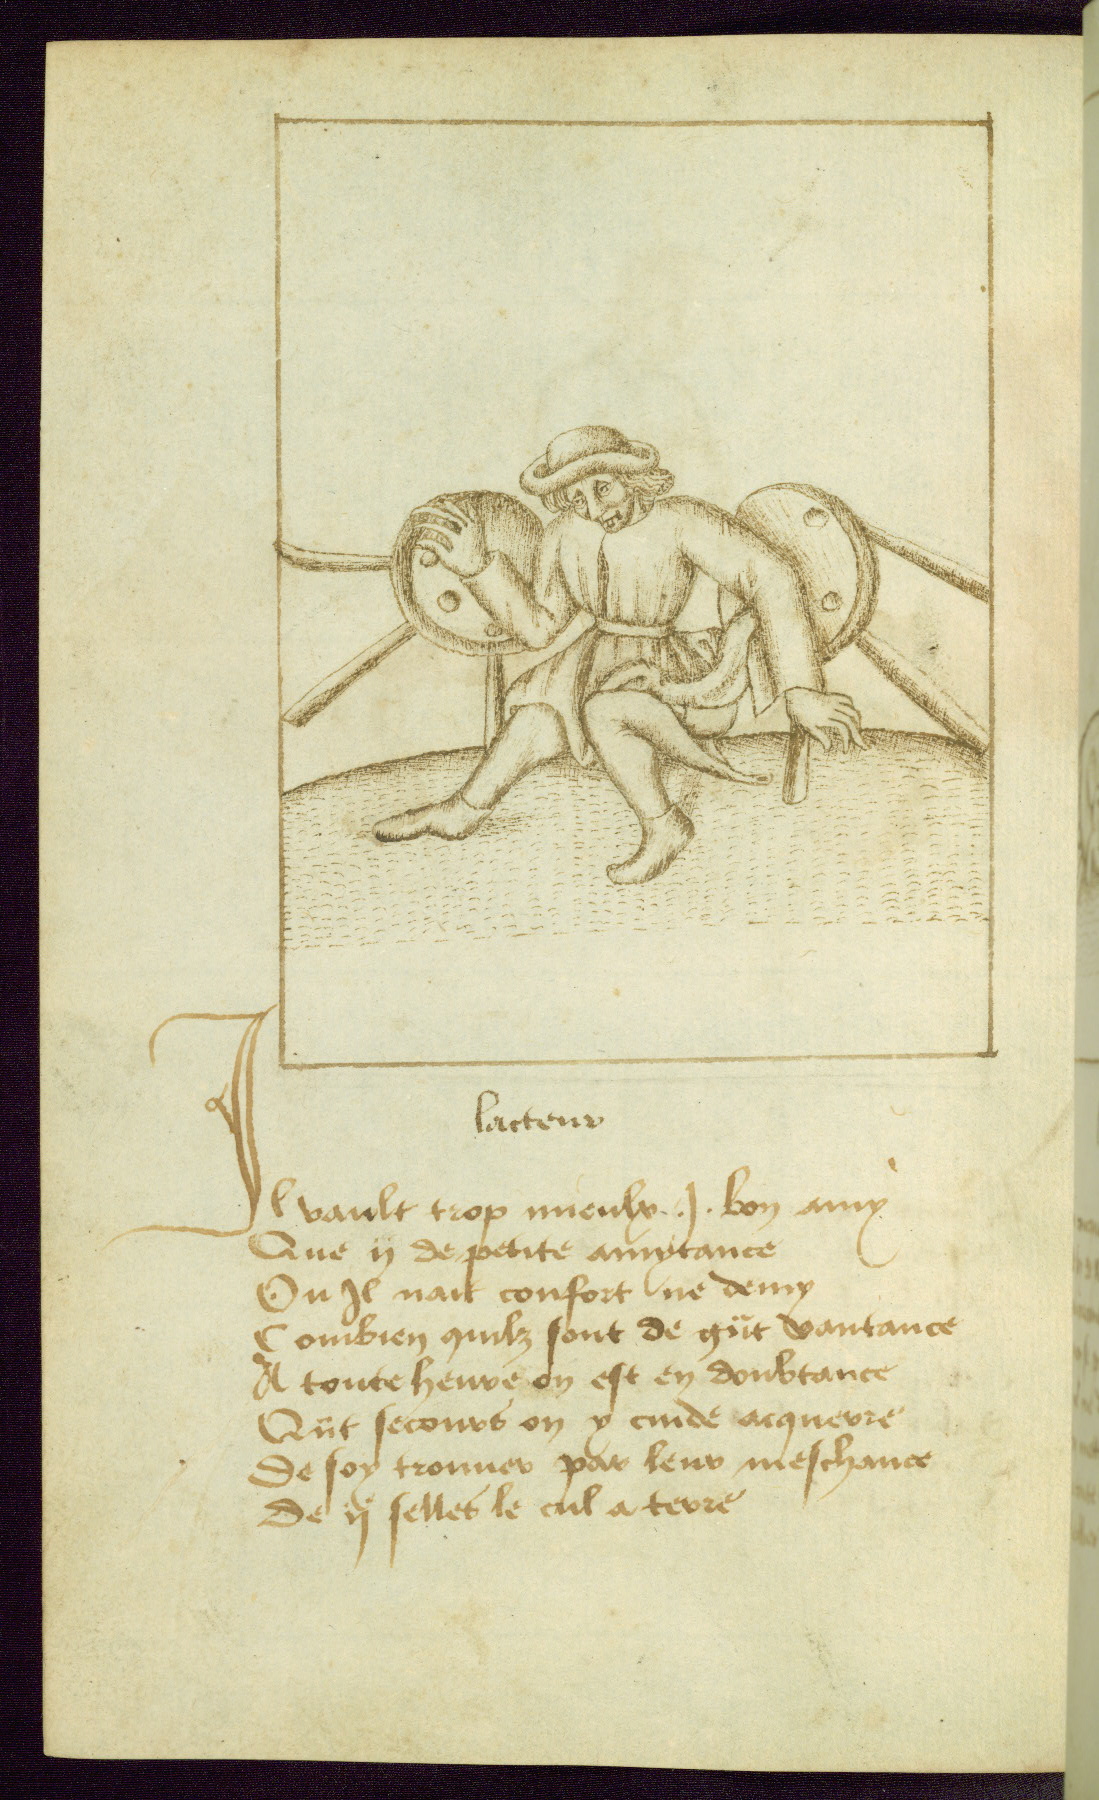 lacteur
Il vault trop mieulx .I. bon amy
Que ij de petite amytance
Ou Il nait confort ne demy
Combien quilz sont de gũt vantance
A toute heure on est en doubtance
Qũt secours on y cuide acquerre
De soy trouuer par leur meschance
De ij selles le cul a terre